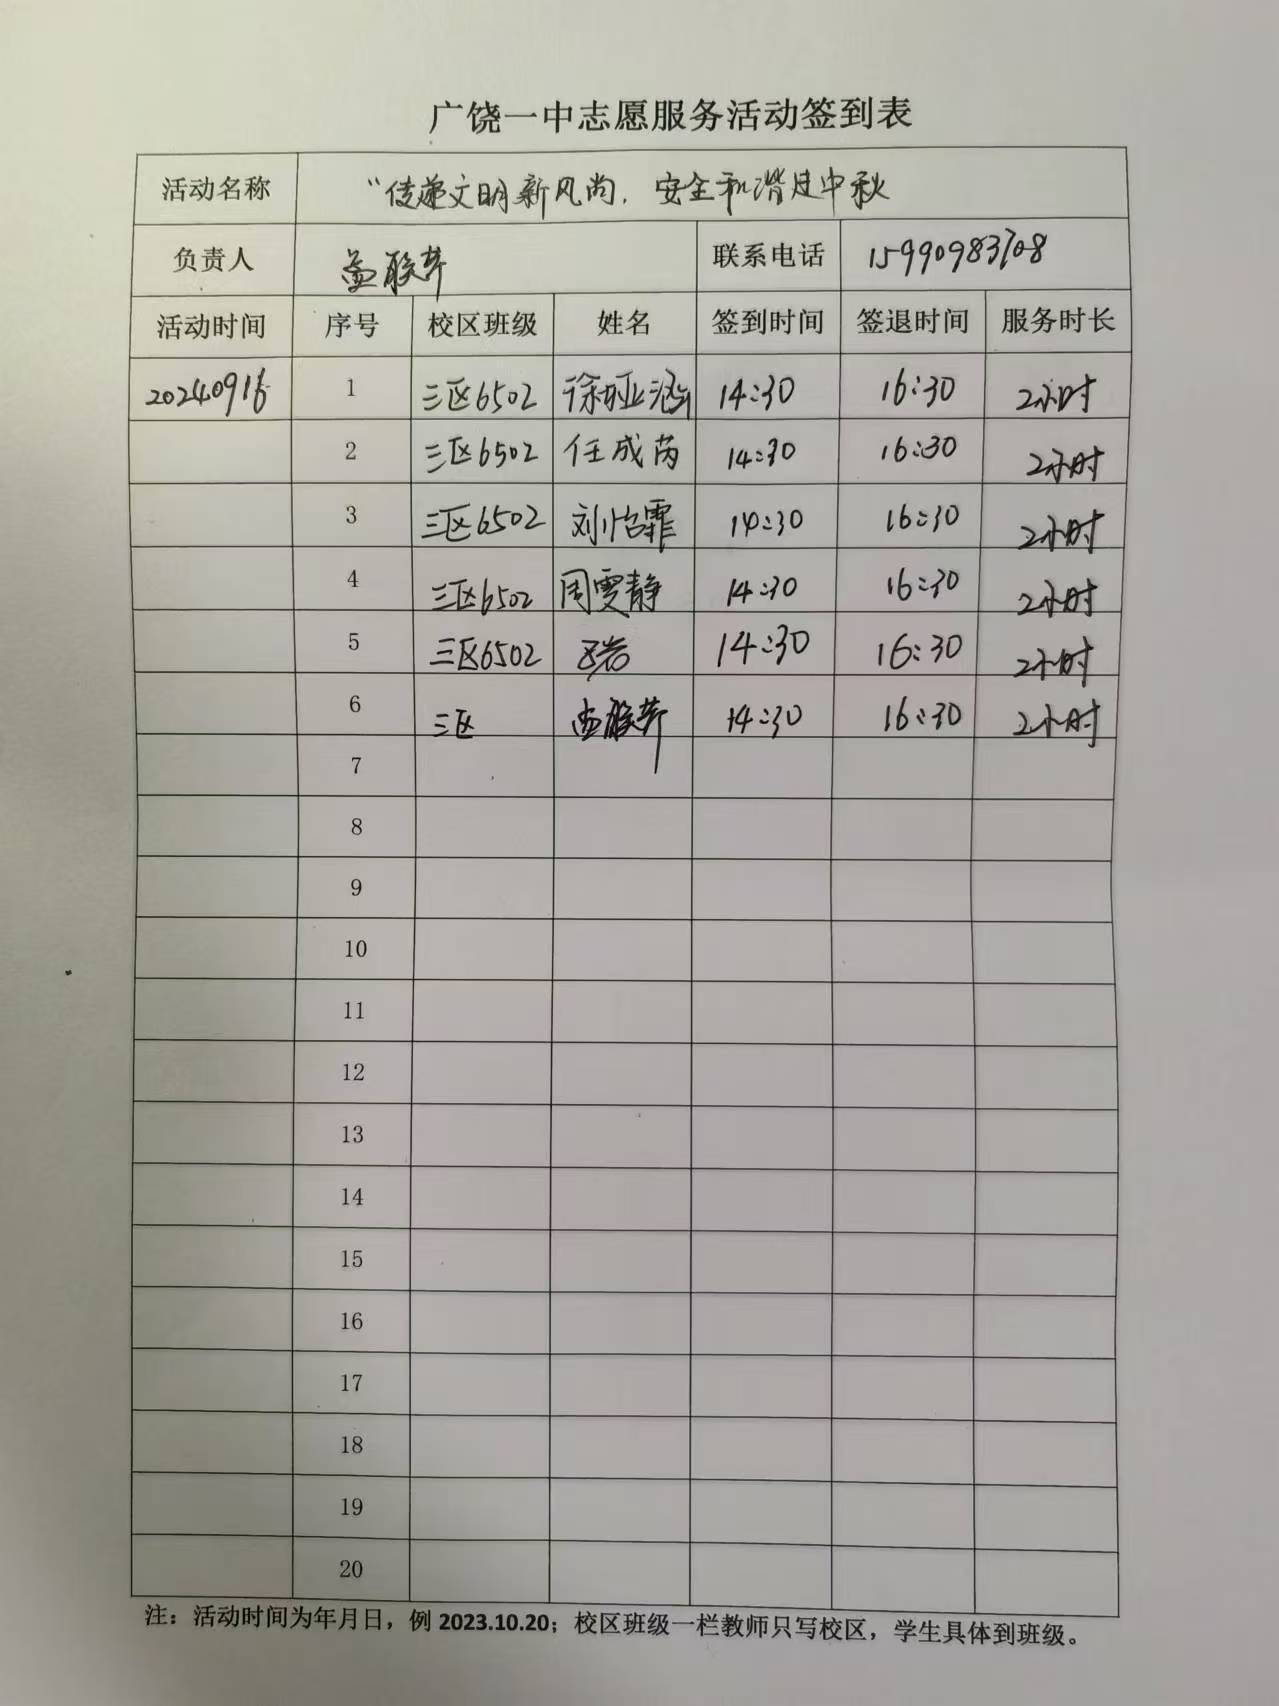 广饶一中志愿服务活动签到表
活动名称 “传递文明新风尚，安全和谐过中秋
负责人 联系电话 15990983708
活动时间 序号 校区班级 姓名 签到时间 签退时间 服务时长
20240916 1 三区6502 徐娅涵 14:30 16:30 2小时
2 三区6502 任成芮 14:30 16:30 2小时
3 三区6502 刘怡霏 14:30 16:30 2小时
4 三区6502 周雯静 14:30 16:30 2小时
5 三区6502 14:30 16:30 2小时
6 三区 14:30 16:30 2小时
7
8
9
10
11
12
13
14
15
16
17
18
19
20
注：活动时间为年月日，例 2023.10.20；校区班级一栏教师只写校区，学生具体到班级。